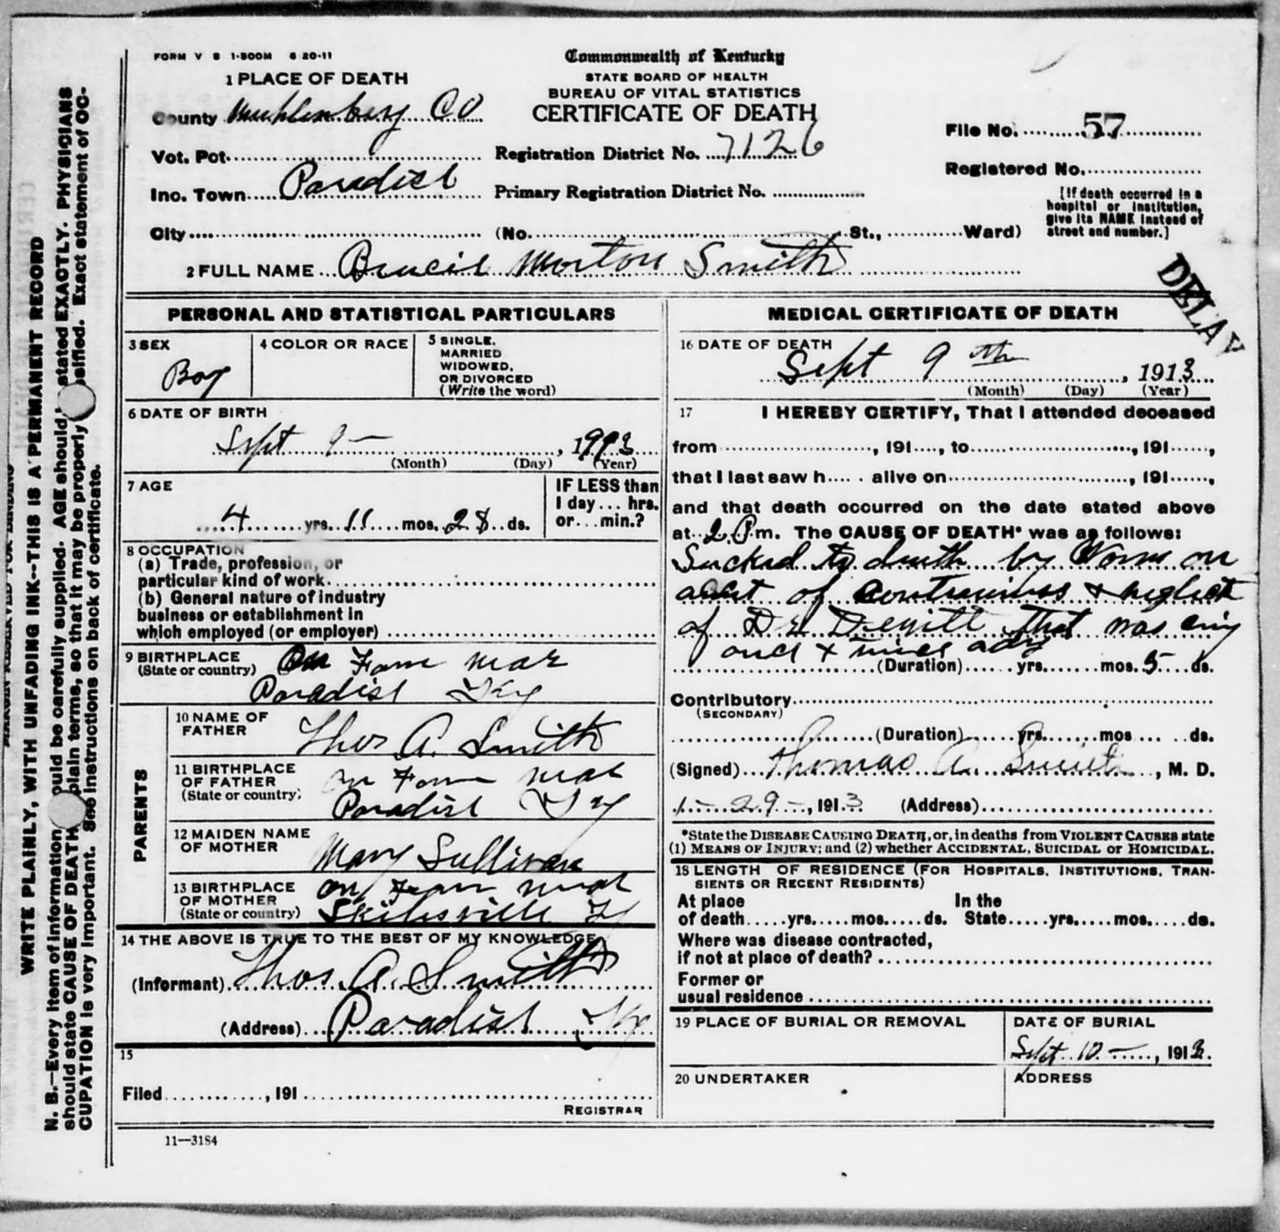 FORM V S 1-500M 6 20-11
Commonwealth of Kentucky
STATE BOARD OF HEALTH
BUREAU OF VITAL STATISTICS
CERTIFICATE OF DEATH
1 PLACE OF DEATH
County Muhlenberg CO
Vot. Pct.
Inc. Town Paradise
City
Registration District No. 7126
Primary Registration District No.
(No. St., Ward)
File No. 57
Registered No.
[If death occurred in a
hospital or institution,
give its NAME instead of
street and number.]
2 FULL NAME Morton Smith
DELAY
PERSONAL AND STATISTICAL PARTICULARS
3 SEX
Boy
4 COLOR OR RACE
5 SINGLE,
MARRIED
WIDOWED,
OR DIVORCED
(Write the word)
6 DATE OF BIRTH
Sept 9 —
(Month) (Day) (Year)
7 AGE
4 yrs 11 mos. 28 ds.
IF LESS than
1 day ... hrs.
or ... min.?
8 OCCUPATION
(a) Trade, profession, or
particular kind of work
(b) General nature of industry
business or establishment in
which employed (or employer)
9 BIRTHPLACE
(State or country)
On Farm near
Paradise Ky
PARENTS
10 NAME OF
FATHER
Thos A. Smith
11 BIRTHPLACE
OF FATHER
(State or country)
on Farm near
Paradise Ky
12 MAIDEN NAME
OF MOTHER
Mary Sullivan
13 BIRTHPLACE
OF MOTHER
(State or country)
on Farm near
Skilesville Ky
14 THE ABOVE IS TRUE TO THE BEST OF MY KNOWLEDGE
(Informant) Thos. A. Smith
(Address) Paradise Ky.
15
Filed , 191
REGISTRAR
11—3184
MEDICAL CERTIFICATE OF DEATH
16 DATE OF DEATH
Sept 9th, 1913
(Month) (Day) (Year)
17 I HEREBY CERTIFY, That I attended deceased
from , 191 , to , 191 ,
that I last saw h alive on , 191 ,
and that death occurred on the date stated above
at 2 P m. The CAUSE OF DEATH* was as follows:
Sucked to death by Worms on
acct of & neglect
of Dr Dewitt that was
once & twice a day
(Duration) yrs. mos. 5 ds.
Contributory
(SECONDARY)
(Duration) yrs. mos ds.
(Signed) Thomas A. Smith, M. D.
1 - 29 -, 1913 (Address)
*State the DISEASE CAUSING DEATH, or, in deaths from VIOLENT CAUSES state
(1) MEANS OF INJURY; and (2) whether ACCIDENTAL, SUICIDAL OR HOMICIDAL.
18 LENGTH OF RESIDENCE (FOR HOSPITALS, INSTITUTIONS, TRAN-
SIENTS OR RECENT RESIDENTS)
At place In the
of death yrs. mos. ds. State yrs. mos. ds.
Where was disease contracted,
if not at place of death?
Former or
usual residence
19 PLACE OF BURIAL OR REMOVAL
DATE OF BURIAL
Sept 10 —, 1913.
20 UNDERTAKER
ADDRESS
WRITE PLAINLY, WITH UNFADING INK--THIS IS A PERMANENT RECORD
N. B.—Every item of information should be carefully supplied. AGE should stated EXACTLY. PHYSICIANS
should state CAUSE OF DEATH plain terms, so that it may be properly classified. Exact statement of OC-
CUPATION is very important. See instructions on back of certificate.